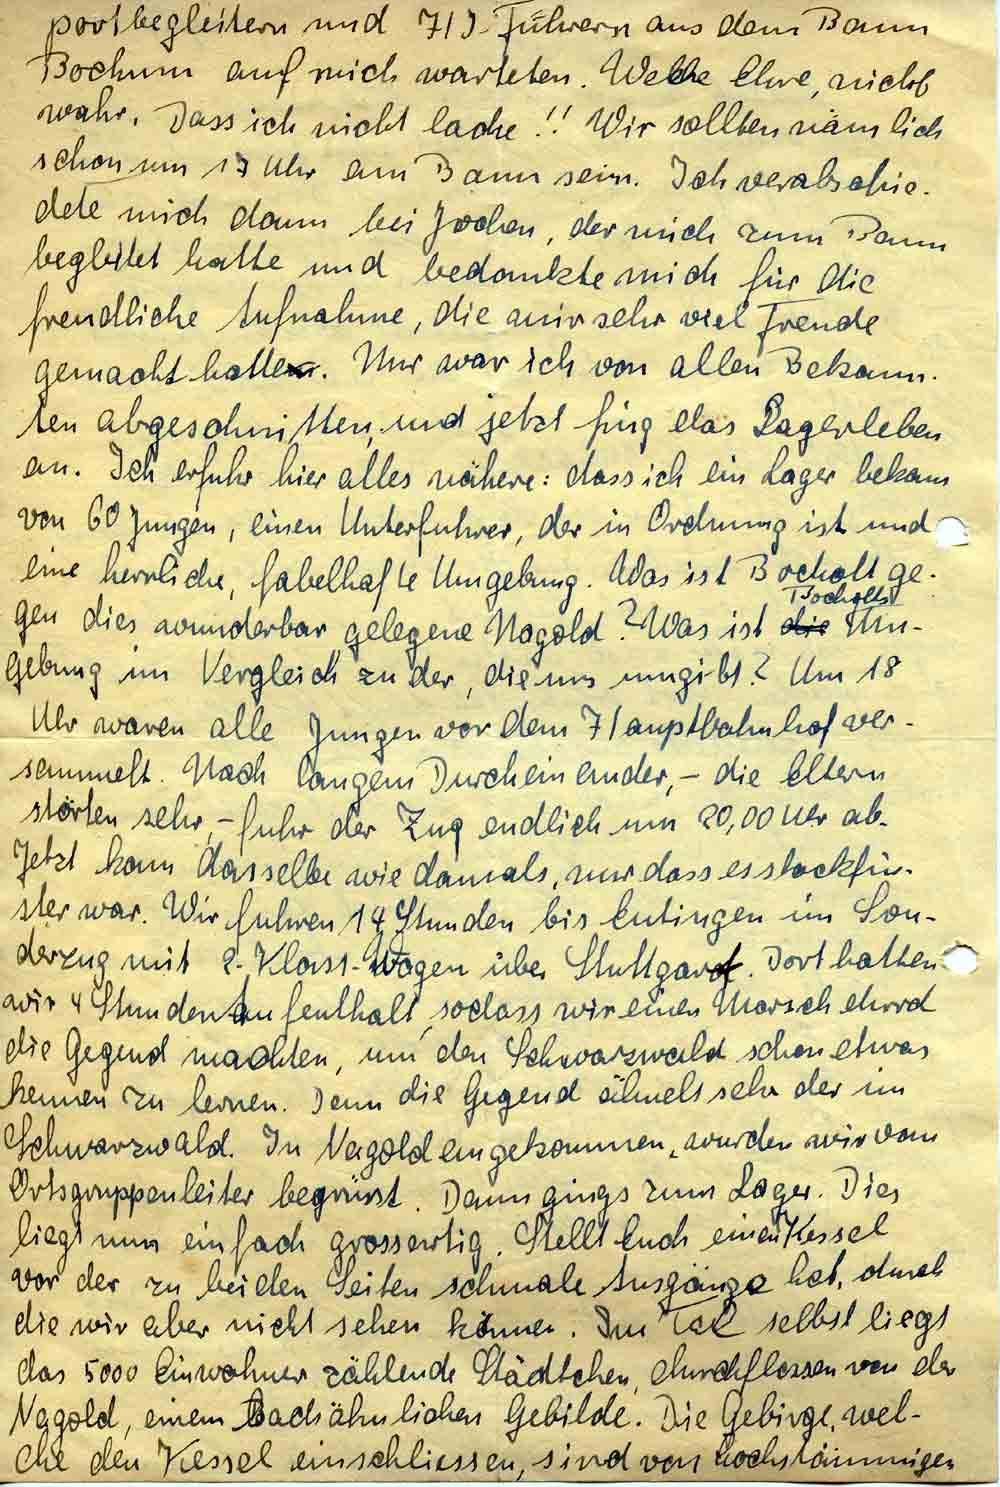 portbegleitern und HJ-Führern aus dem Bann
Bochum auf mich warteten. Welche Ehre, nicht
wahr. Dass ich nicht lache!! Wir sollten nämlich
schon um 17 Uhr am Bann sein. Ich verabschie-
dete mich dann bei Jochen, der mich zum Bann
begleitet hatte und bedankte mich für die
freundliche Aufnahme, die mir sehr viel Freude
gemacht hatte. Nur war ich von allen Bekann-
ten abgeschnitten, und jetzt fing das Lagerleben
an. Ich erfuhr hier alles nähere: dass ich ein Lager bekam
von 60 Jungen, einen Unterführer, der in Ordnung ist und
eine herrliche, fabelhafte Umgebung. Was ist Bocholt ge-
gen dies wunderbar gelegene Nagold? Was ist die Bocholts Um-
gebung im Vergleich zu der, die uns umgibt? Um 18
Uhr waren alle Jungen vor dem Hauptbahnhof ver-
sammelt. Nach langem Durcheinander, – die Eltern
störten sehr, – fuhr der Zug endlich um 20,00 Uhr ab.
Jetzt kam dasselbe wie damals, nur dass es stockfin-
ster war. Wir fuhren 14 Stunden bis Eutingen im Son-
derzug mit 2. Klass-Wagen über Stuttgart. Dort hatten
wir 4 Stunden Aufenthalt, sodass wir einen Marsch durch
die Gegend machten, um den Schwarzwald schon etwas
kennen zu lernen. Denn die Gegend ähnelt sehr der im
Schwarzwald. In Nagold angekommen, wurden wir vom
Ortsgruppenleiter begrüsst. Dann gings zum Lager. Dies
liegt nun einfach grossartig. Stellt Euch einen Kessel
vor der zu beiden Seiten schmale Ausgänge hat, durch
die wir aber nicht sehen können. Im Tal selbst liegt
das 5000 Einwohner zählende Städtchen, durchflossen von der
Nagold, einem Bachähnlichen Gebilde. Die Gebirge, wel-
che den Kessel einschliessen, sind von hochstämmigen